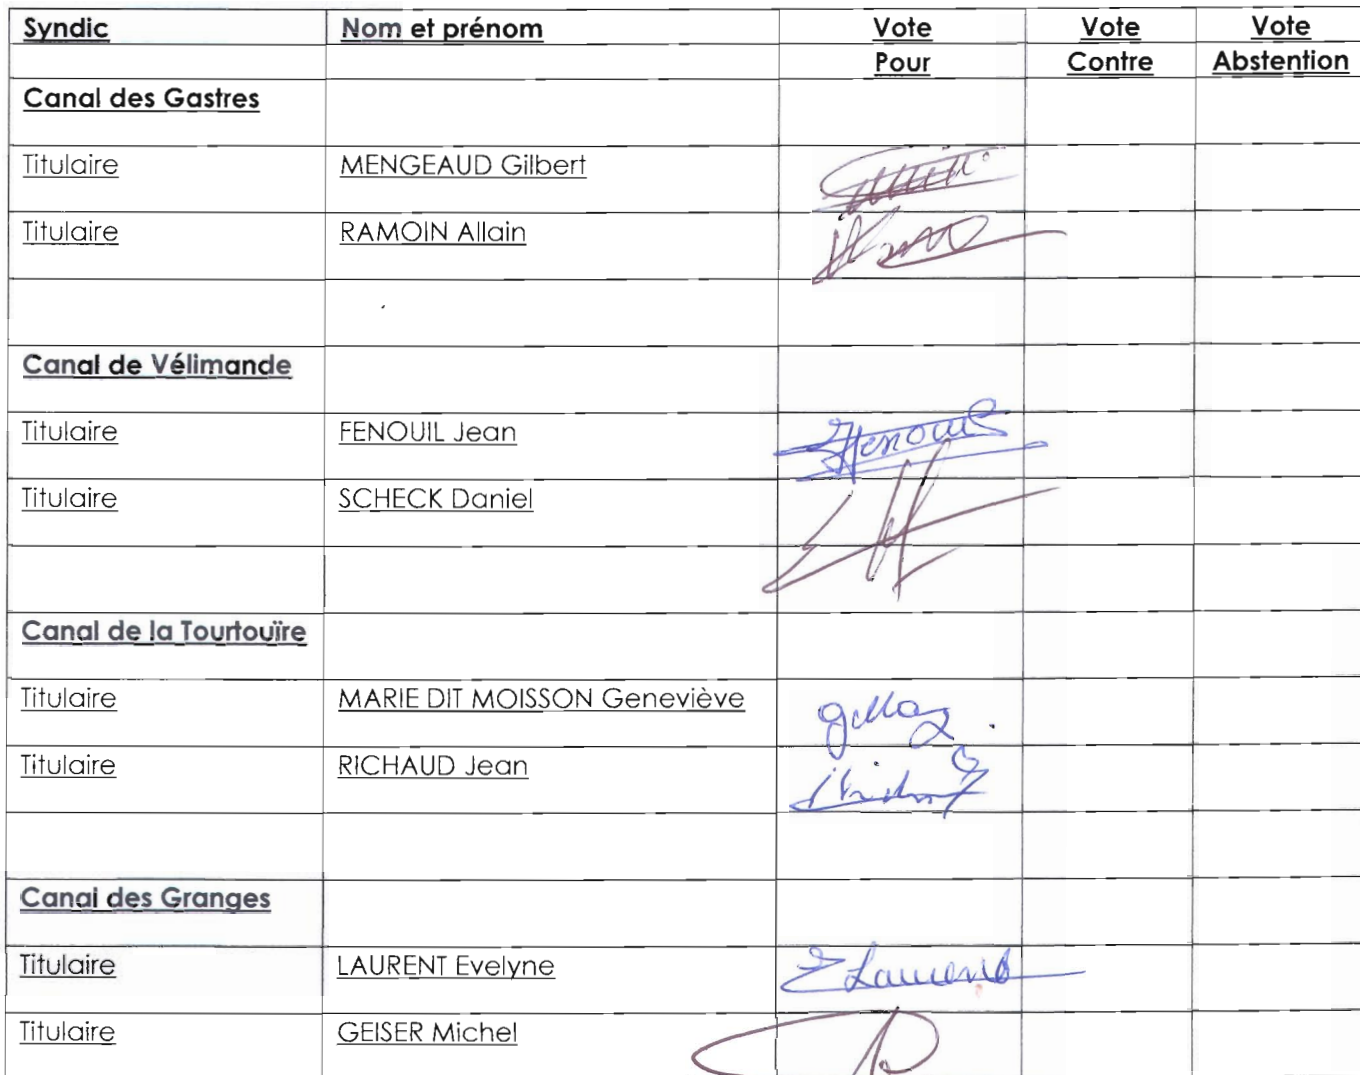 Syndic Nom et prénom Vote Vote Vote
Pour Contre Abstention
Canal des Gastres
Titulaire MENGEAUD Gilbert
Titulaire RAMOIN Allain
Canal de Vélimande
Titulaire FENOUIL Jean Fenouil
Titulaire SCHECK Daniel
Canal de la Tourtouïre
Titulaire MARIE DIT MOISSON Geneviève
Titulaire RICHAUD Jean
Canal des Granges
Titulaire LAURENT Evelyne E Laurent
Titulaire GEISER Michel